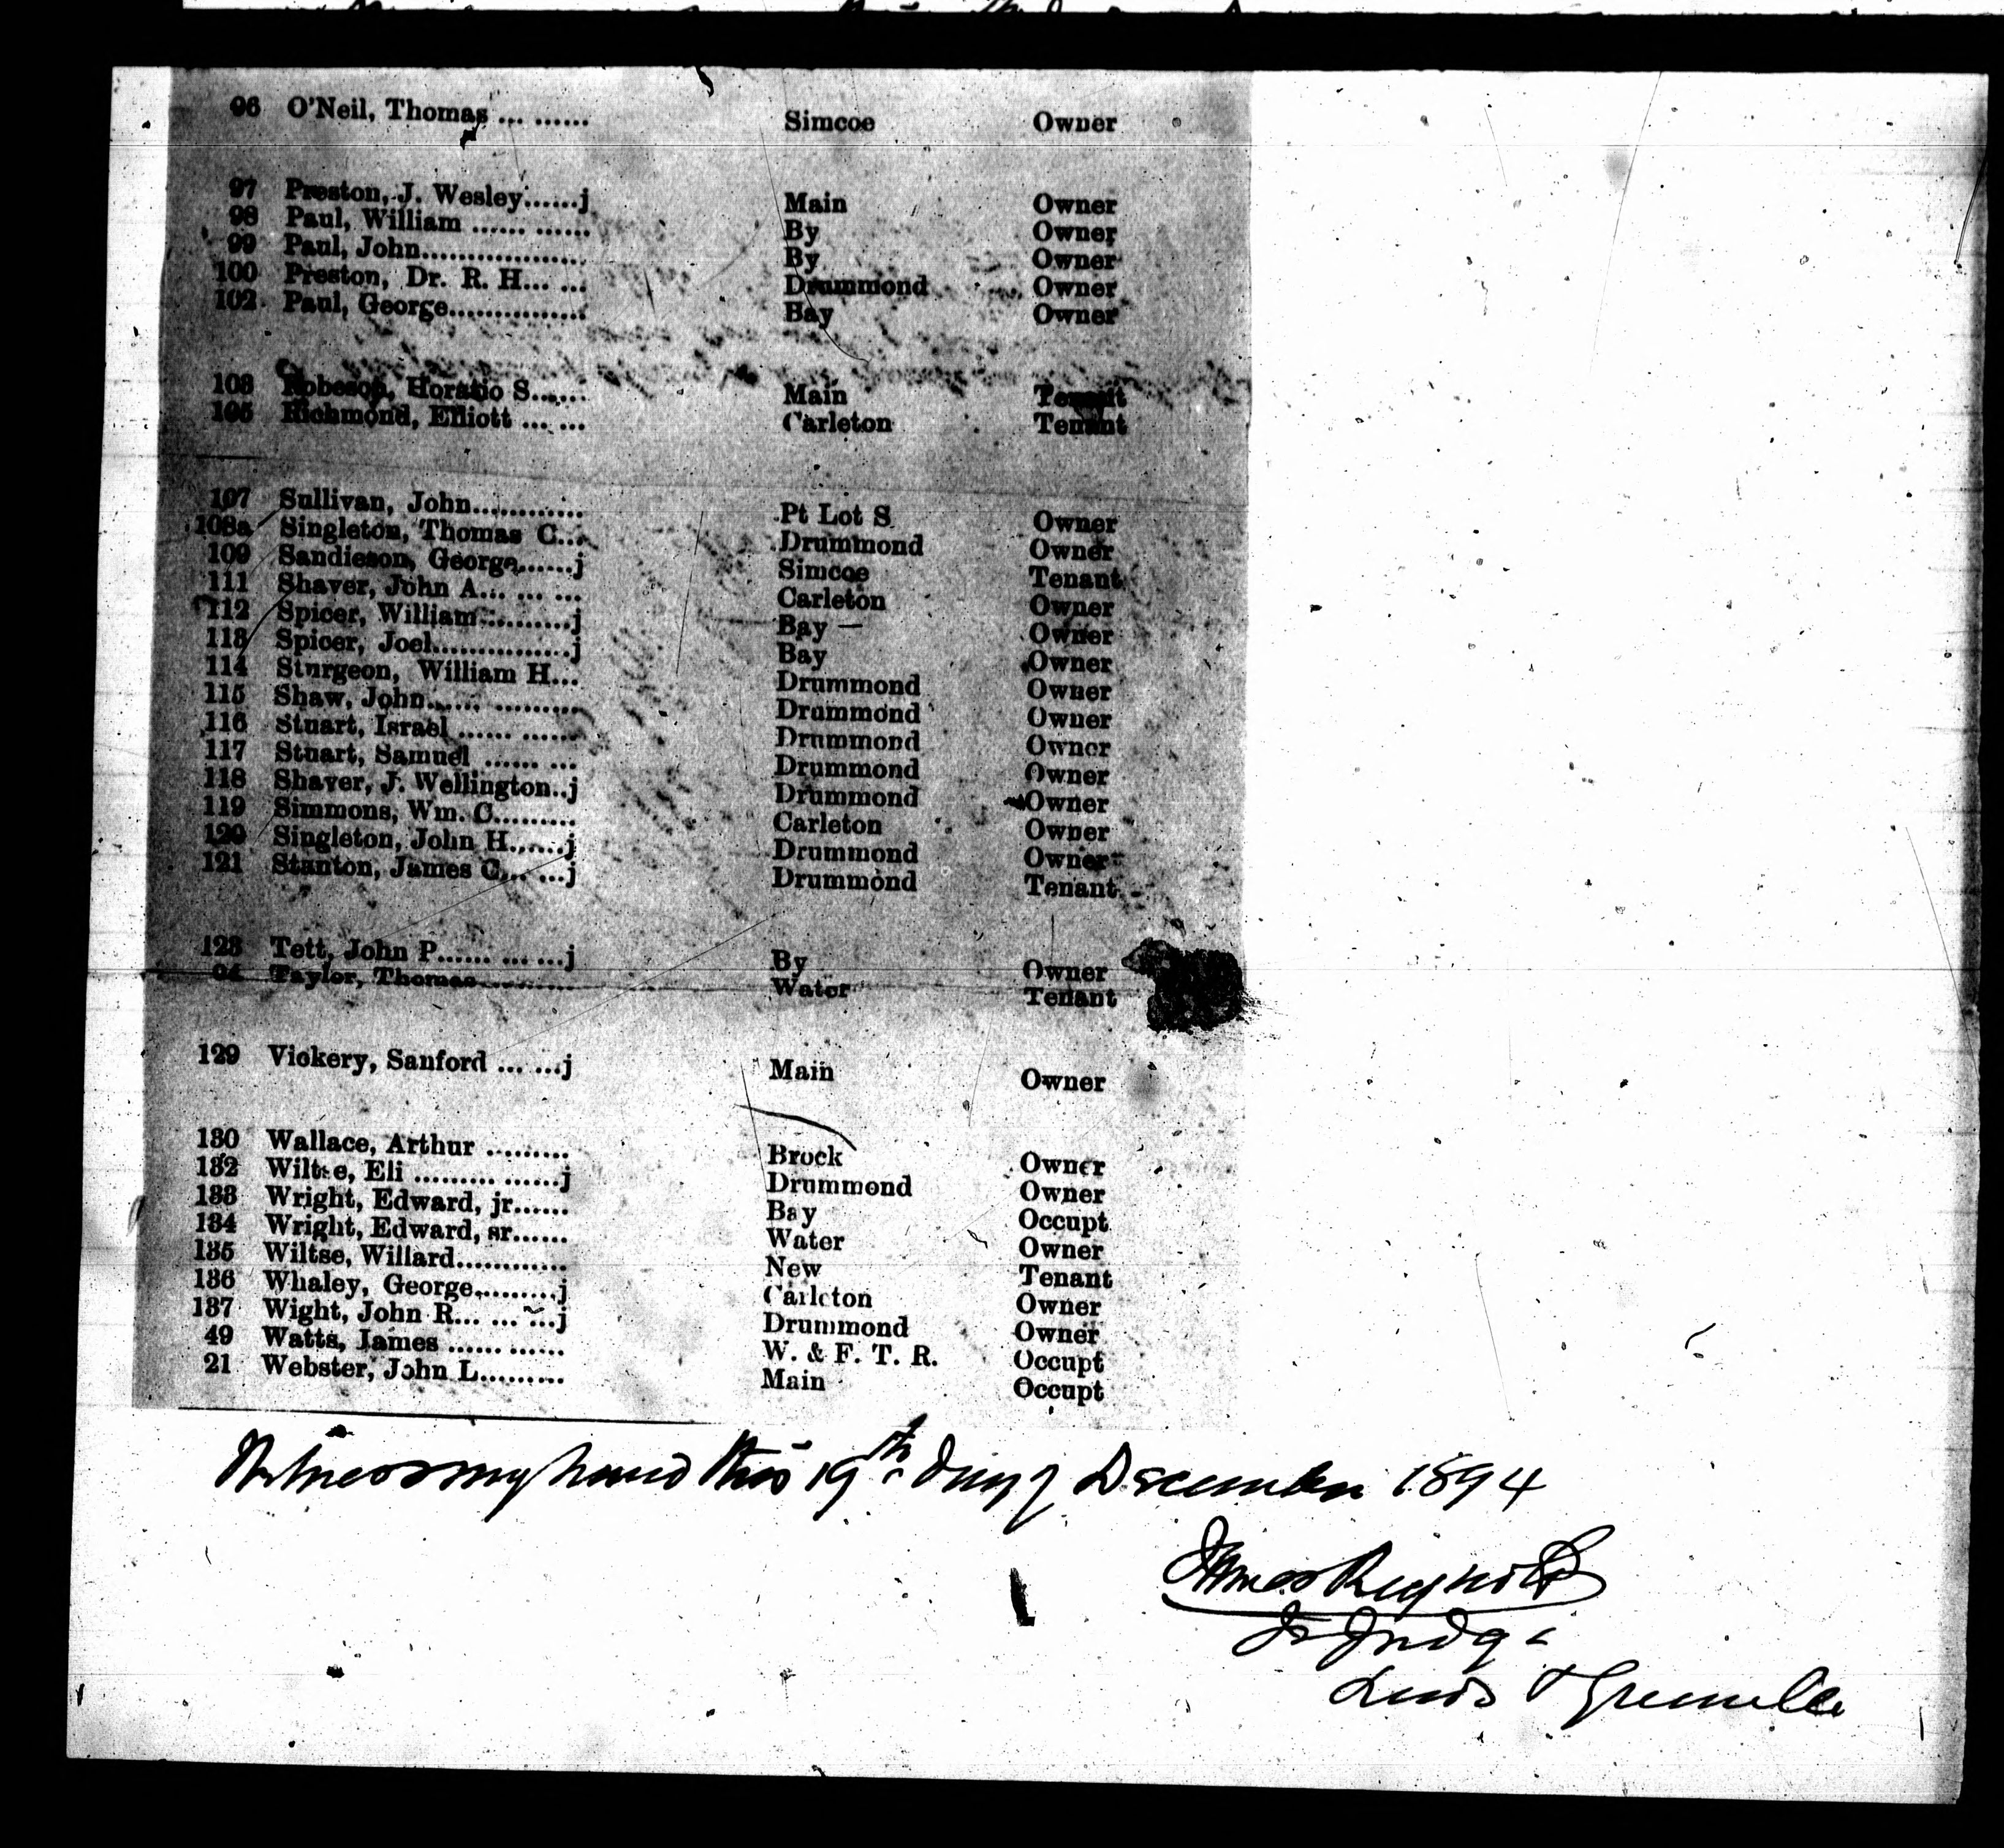 96 O'Neil, Thomas ... ...... Simcoe Owner
97 Preston, J. Wesley......j Main Owner
98 Paul, William ...... ...... By Owner
99 Paul, John.................. By Owner
100 Preston, Dr. R. H... ... Drummond Owner
102 Paul, George............... Bay Owner
103 Robeson, Horatio S...... Main Tenant
105 Richmond, Elliott ... ... Carleton Tenant
107 Sullivan, John............ Pt Lot S Owner
108a Singleton, Thomas C... Drummond Owner
109 Sandieson, George......j Simcoe Tenant
111 Shaver, John A... ... ... Carleton Owner
112 Spicer, William..........j Bay Owner
113 Spicer, Joel...............j Bay Owner
114 Sturgeon, William H... Drummond Owner
115 Shaw, John...... ......... Drummond Owner
116 Stuart, Israel ...... ...... Drummond Owner
117 Stuart, Samuel ...... ... Drummond Owner
118 Shaver, J. Wellington..j Drummond Owner
119 Simmons, Wm. C......... Carleton Owner
120 Singleton, John H......j Drummond Owner
121 Stanton, James C... ...j Drummond Tenant
123 Tett, John P...... ... ...j By Owner
94 Taylor, Thomas.......... Water Tenant
129 Vickery, Sanford ... ...j Main Owner
130 Wallace, Arthur ......... Brock Owner
132 Wiltse, Eli ......... ......j Drummond Owner
133 Wright, Edward, jr...... Bay Occupt
134 Wright, Edward, sr...... Water Owner
135 Wiltse, Willard............ New Tenant
136 Whaley, George.........j Carleton Owner
137 Wight, John R... ... ...j Drummond Owner
49 Watts, James ...... ...... W. & F. T. R. Occupt
21 Webster, John L......... Main Occupt
Witness my hand this 19th day of December 1894
James Reynolds
Jr Judge
Leeds & Grenville